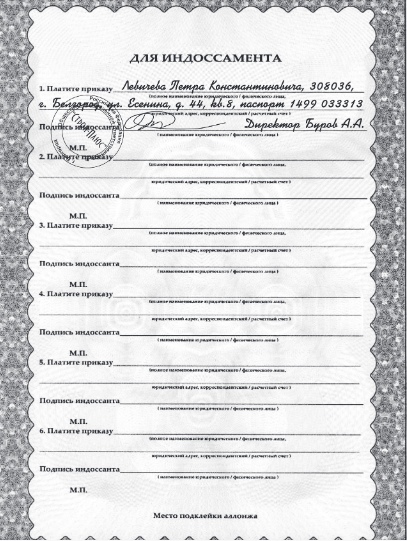 ДЛЯ ИНДОССАМЕНТА
1. Платите приказу Левичева Петра Константиновича, 308036,
(полное наименование юридического / физического лица,
г. Белгород, ул. Есенина, д. 44, кв.8, паспорт 1499 033313
юридический адрес, корреспондентский / расчетный счет )
Подпись индоссанта Директор Буров А.А.
( наименование юридического / физического лица )
М.П.
2. Платите приказу
(полное наименование юридического / физического лица,
юридический адрес, корреспондентский / расчетный счет )
Подпись индоссанта
( наименование юридического / физического лица )
М.П.
3. Платите приказу
(полное наименование юридического / физического лица,
юридический адрес, корреспондентский / расчетный счет )
Подпись индоссанта
( наименование юридического / физического лица )
М.П.
4. Платите приказу
(полное наименование юридического / физического лица,
юридический адрес, корреспондентский / расчетный счет )
Подпись индоссанта
( наименование юридического / физического лица )
М.П.
5. Платите приказу
(полное наименование юридического / физического лица,
юридический адрес, корреспондентский / расчетный счет )
Подпись индоссанта
( наименование юридического / физического лица )
М.П.
6. Платите приказу
(полное наименование юридического / физического лица,
юридический адрес, корреспондентский / расчетный счет )
Подпись индоссанта
( наименование юридического / физического лица )
М.П.
Место подклейки аллонжа